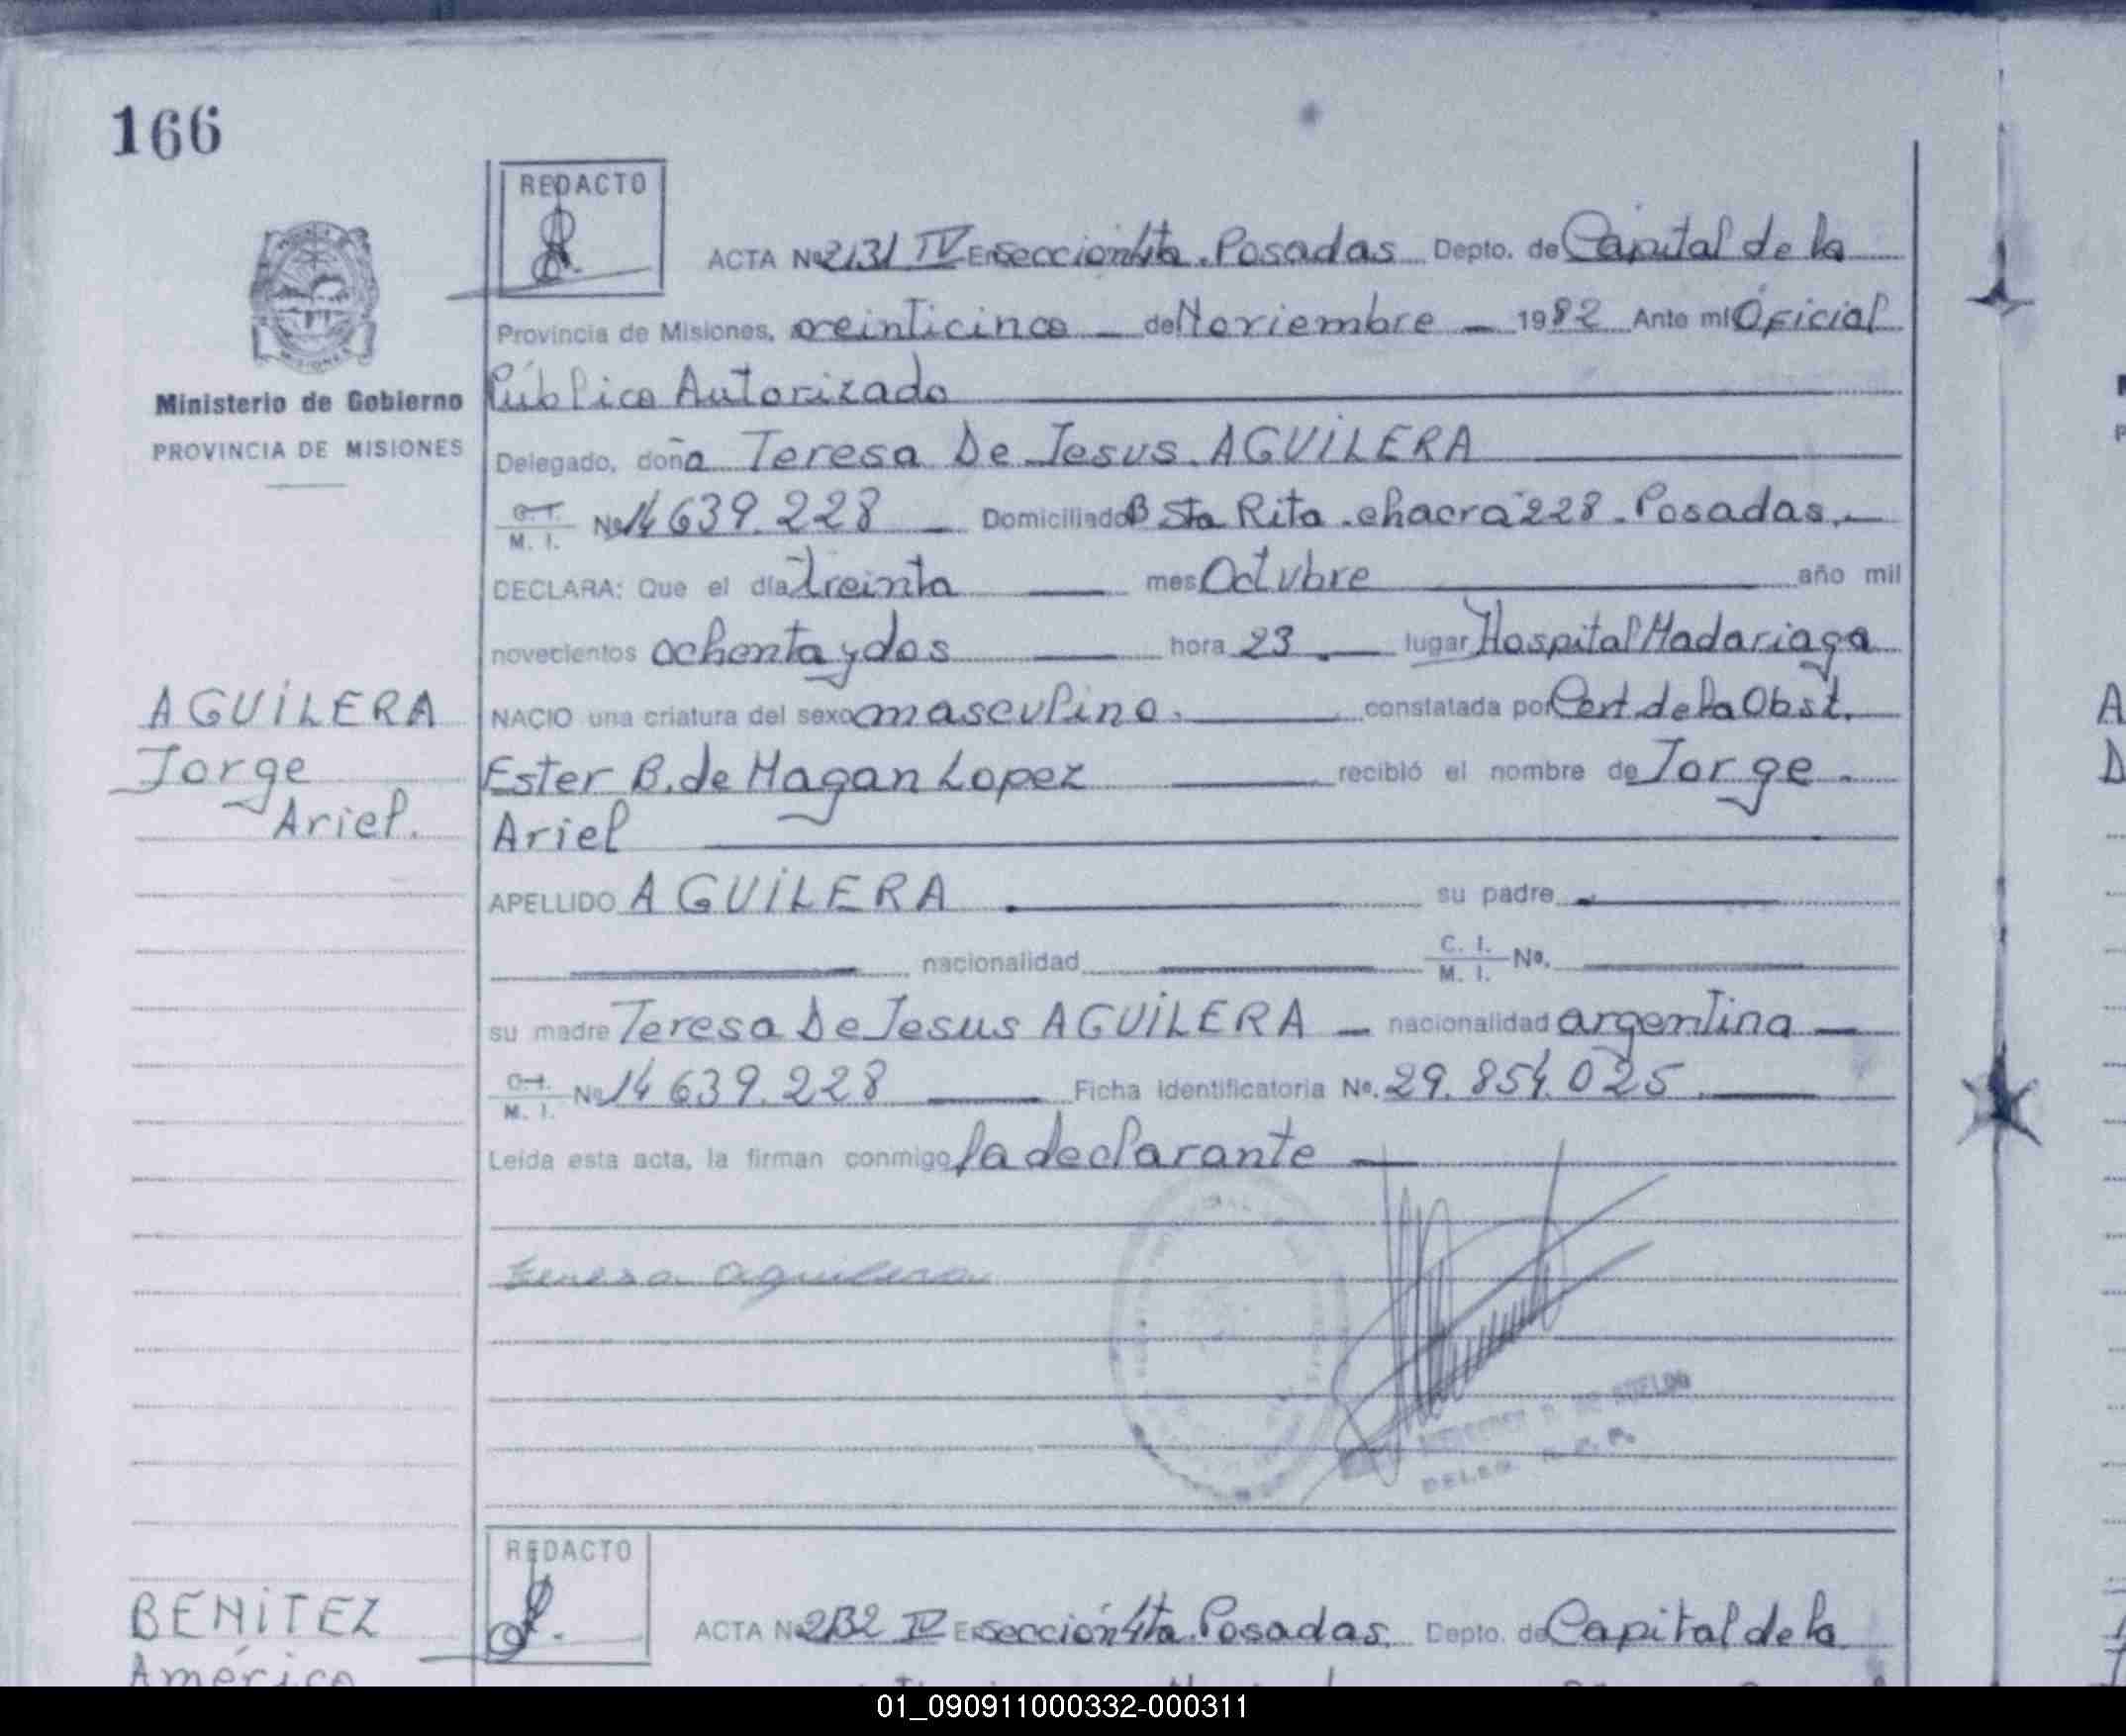 166
REDACTO
ACTA Nº 2131 IV En Sección 4ta. Posadas Depto. de Capital de la
Provincia de Misiones, veinticinco de Noviembre 1982 Ante mí Oficial
Ministerio de Gobierno
Público Autorizado
PROVINCIA DE MISIONES
Delegado, doña Teresa De Jesus AGUILERA
C. I. M. I. Nº 14.639.228 Domiciliado Bº Sta Rita chacra 228 Posadas
DECLARA: Que el día treinta mes Octubre año mil
novecientos ochenta y dos hora 23 lugar Hospital Madariaga
AGUILERA
NACIO una criatura del sexo masculino. constatada por Cert. de la Obst.
Jorge
Ester B. de Magan Lopez recibió el nombre de Jorge
Ariel.
Ariel
APELLIDO AGUILERA su padre
nacionalidad C. I. M. I. Nº.
su madre Teresa De Jesus AGUILERA nacionalidad argentina
C. I. M. I. Nº 14.639.228 Ficha identificatoria Nº. 29.854.025
Leída esta acta, la firman conmigo la declarante
Teresa Aguilera
DELEG. R. C. P.
REDACTO
BENITEZ
ACTA Nº 2132 IV En sección 4ta. Posadas. Depto. de Capital de la
Américo
01_090911000332-000311